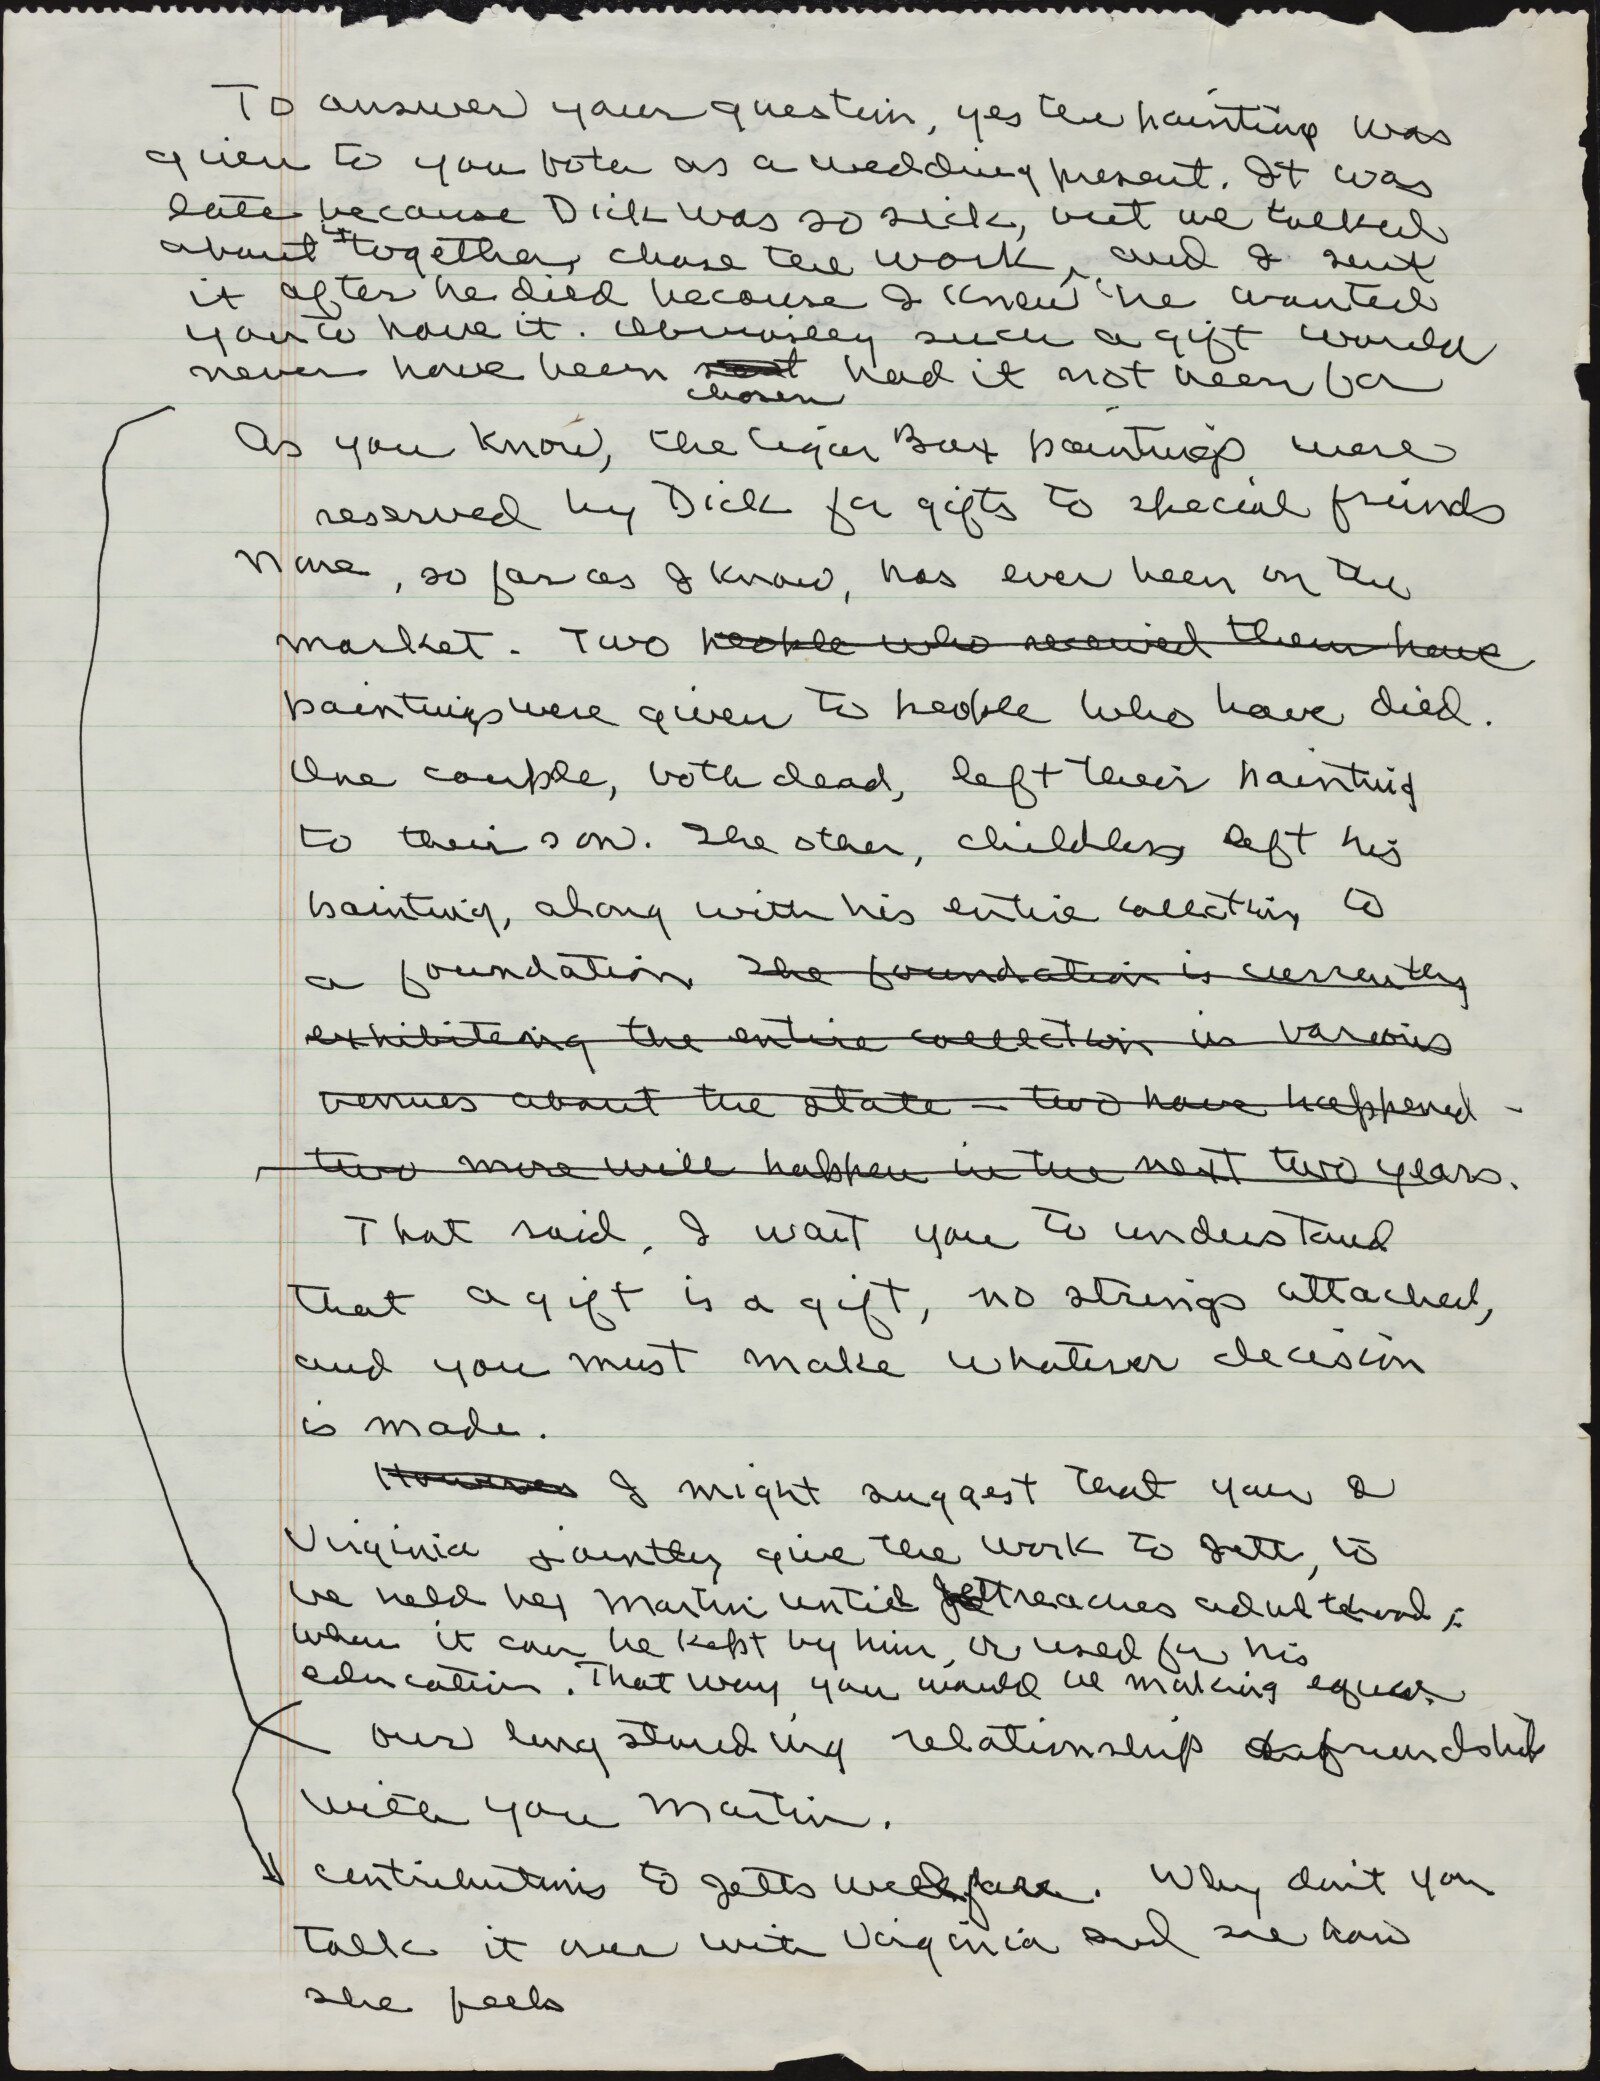 To answer your question, yes the painting was
given to you both as a wedding present. It was
late because Dick was so sick, but we talked
about it together, chose the work, and I sent
it after he died because I knew he wanted
you to have it. Obviously such a gift would
never have been sent chosen had it not been for
As you know, the Cigar Box paintings were
reserved by Dick for gifts to special friends
None, so far as I know, has ever been on the
market. Two people who received them have
paintings were given to people who have died.
One couple, both dead, left their painting
to their son. The other, childless left his
painting, along with his entire collection, to
a foundation. The foundation is currently
exhibiting the entire collection in various
venues about the state - two have happened -
two more will happen in the next two years.
That said, I want you to understand
that a gift is a gift, no strings attached,
and you must make whatever decision
is made.
However I might suggest that you &
Virginia jointly give the work to Jett, to
be held by Martin until Jett reaches adulthood,
when it can be kept by him, or used for his
education. That way you would be making equal
our long standing relationship & friendship
with you Martin.
contributions to Jetts welfare. Why don't you
talk it over with Virginia and see how
she feels